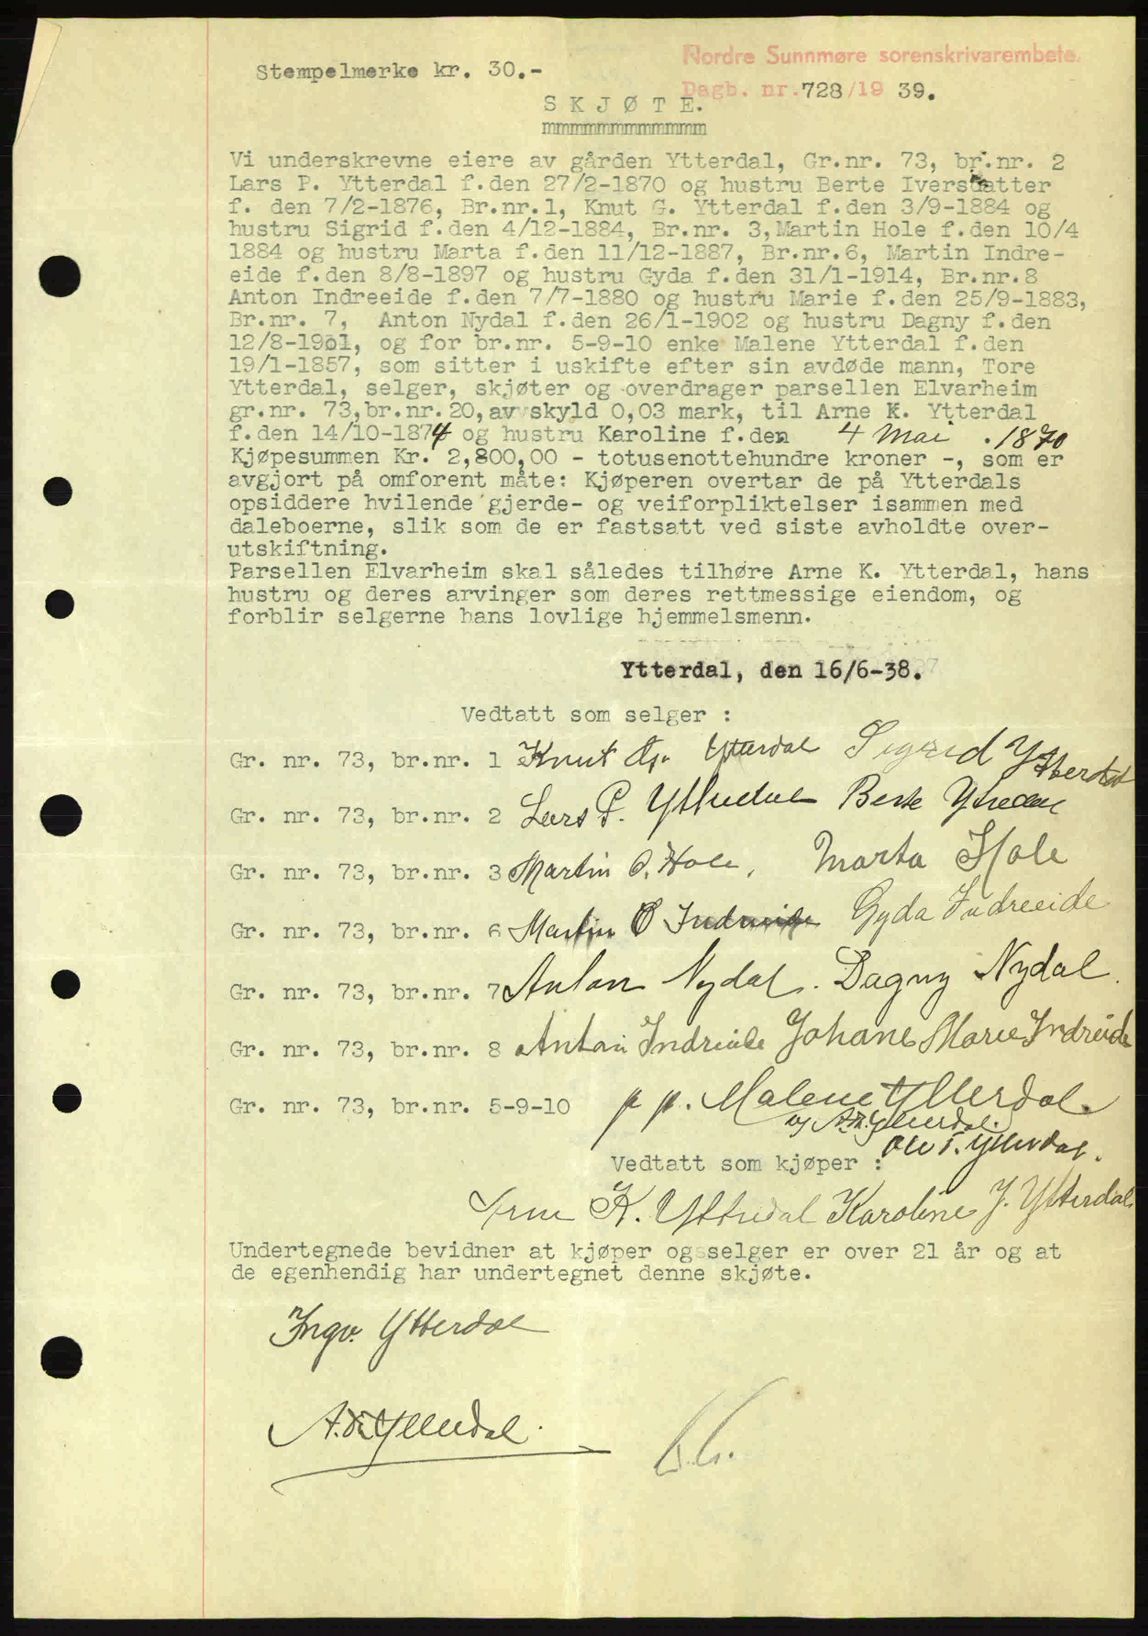 Nordre Sunnmøre sorenskrivarembete.
Stempelmerke kr. 30.-
Dagb. nr. 728/19 39.
S K J Ø T E.
mmmmmmmmmmmmm
Vi underskrevne eiere av gården Ytterdal, Gr.nr. 73, br.nr. 2
Lars P. Ytterdal f.den 27/2-1870 og hustru Berte Iversdatter
f. den 7/2-1876, Br.nr.1, Knut G. Ytterdal f.den 3/9-1884 og
hustru Sigrid f.den 4/12-1884, Br.nr. 3,Martin Hole f.den 10/4
1884 og hustru Marta f.den 11/12-1887, Br.nr.6, Martin Indre-
eide f.den 8/8-1897 og hustru Gyda f.den 31/1-1914, Br.nr.8
Anton Indreeide f.den 7/7-1880 og hustru Marie f.den 25/9-1883,
Br.nr. 7, Anton Nydal f.den 26/1-1902 og hustru Dagny f.den
12/8-1901, og for br.nr. 5-9-10 enke Malene Ytterdal f.den
19/1-1857, som sitter i uskifte efter sin avdøde mann, Tore
Ytterdal, selger, skjøter og overdrager parsellen Elvarheim
gr.nr. 73,br.nr.20,av skyld 0,03 mark, til Arne K. Ytterdal
f.den 14/10-1874 og hustru Karoline f.den 4 Mai . 1870
Kjøpesummen Kr. 2,800,00 - totusenottehundre kroner -, som er
avgjort på omforent måte: Kjøperen overtar de på Ytterdals
opsiddere hvilende gjerde- og veiforpliktelser isammen med
daleboerne, slik som de er fastsatt ved siste avholdte over-
utskiftning.
Parsellen Elvarheim skal således tilhøre Arne K. Ytterdal, hans
hustru og deres arvinger som deres rettmessige eiendom, og
forblir selgerne hans lovlige hjemmelsmenn.
Ytterdal, den 16/6-38.
Vedtatt som selger :
Gr. nr. 73, br.nr. 1 Knut G. Ytterdal Sigrid Ytterdal
Gr. nr. 73, br.nr. 2 Lars P. Ytterdal Berte Ytterdal
Gr. nr. 73, br.nr. 3 Martin O. Hole, Marta Hole
Gr. nr. 73, br.nr. 6 Martin O Indreeide Gyda Indreeide
Gr. nr. 73, br.nr. 7 Anton Nydal. Dagny Nydal.
Gr. nr. 73, br.nr. 8 Anton Indreide Johane Marie Indreide
Gr. nr. 73, br.nr. 5-9-10 p p. Malene Ytterdal.
Ytterdal.
Ole T. Ytterdal.
Vedtatt som kjøper :
Arne K. Ytterdal Karoline J. Ytterdal
Undertegnede bevidner at kjøper og selger er over 21 år og at
de egenhendig har undertegnet denne skjøte.
Ingv. Ytterdal
Ytterdal.